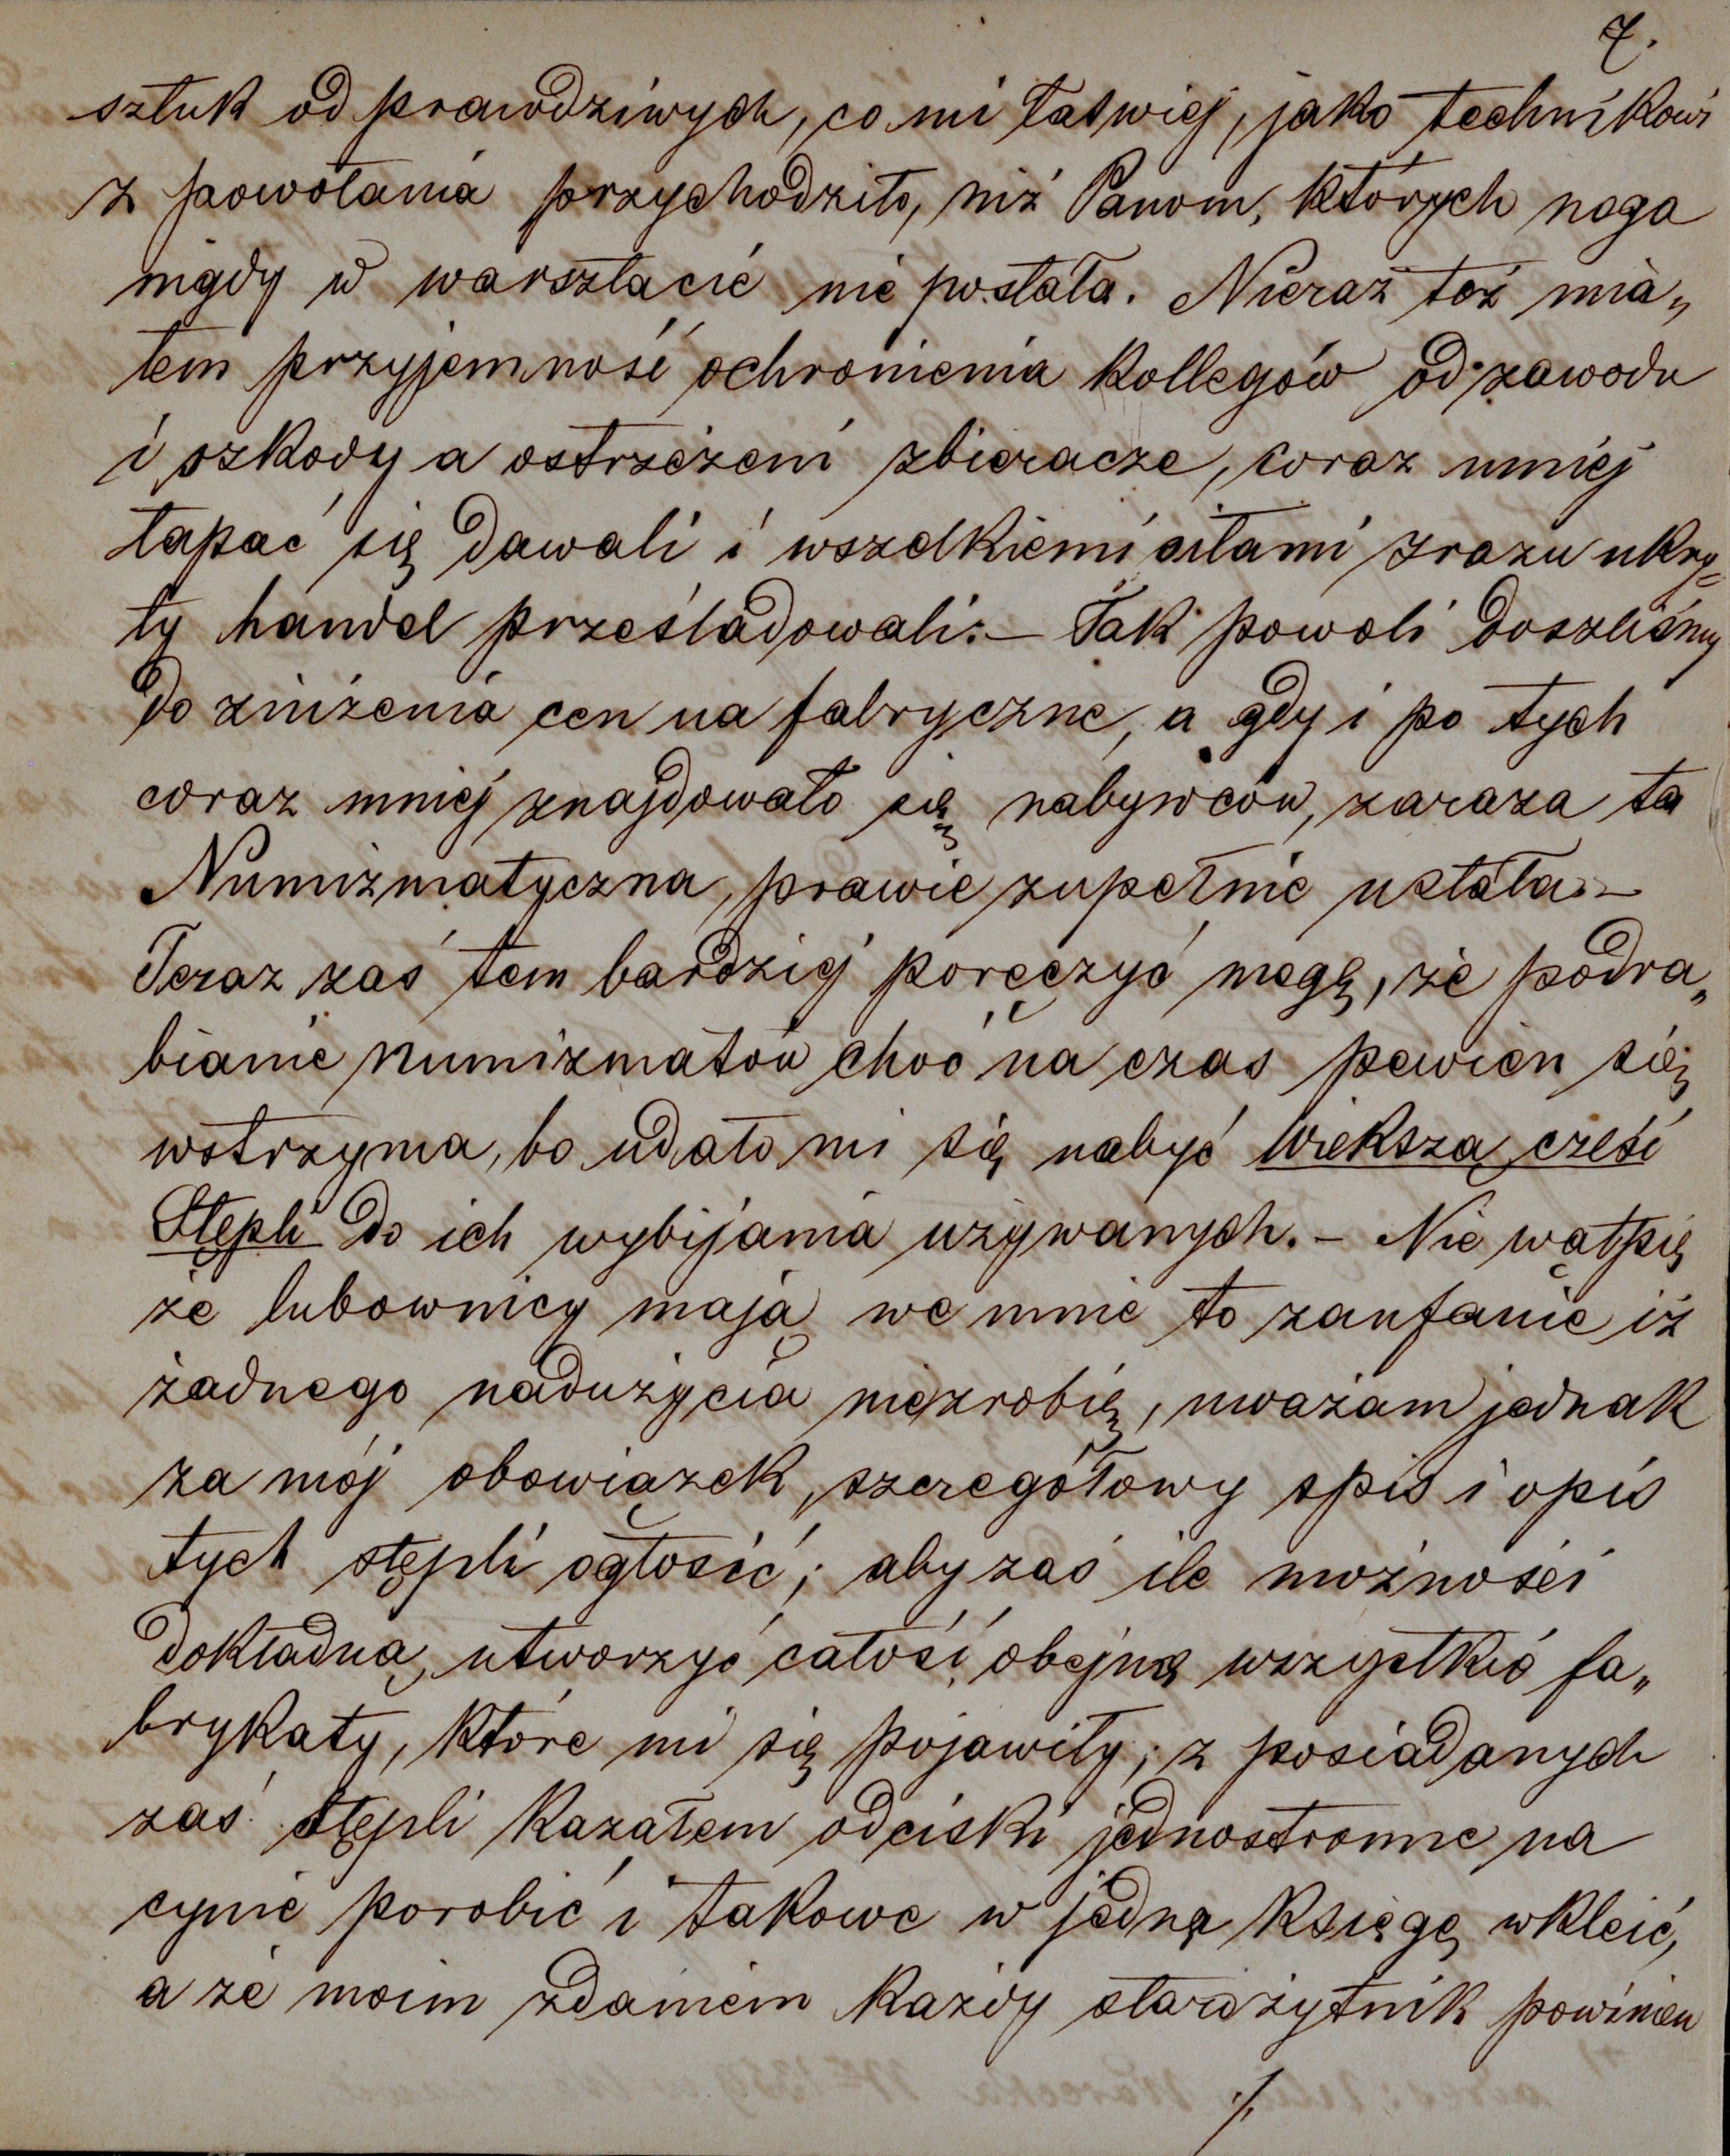 7.
sztuk od prawdziwych, co mi łatwiej, jako technikowi
z powołania przychodziło, niż Panom, których noga
nigdy w warsztacie nie postała. Nieraz też mia„
łem przyjemność ochronienia kollegów od zawodu
i szkody a ostrzeżeni zbieracze, coraz mniej
łapać się dawali i wszelkiemi siłami zrazu ukry=
ty handel prześladowali.— Tak powoli doszliśmy
do zniżenia cen na fabryczne, a gdy i po tych
coraz mniej znajdowało się nabywców, zaraza ta
Numizmatyczna, prawie zupełnie ustała.—
Teraz zaś tem bardziej poręczyć mogę, że podra„
bianie numizmatów choć na czas pewien się
wstrzyma, bo udało mi się nabyć większą część
Stępli do ich wybijania używanych.— Nie wątpię
że lubownicy mają we mnie to zaufanie iż
żadnego nadużycia niezrobię, uważam jednak
za mój obowiązek, szczegółowy spis i opis
tych stępli ogłosić; aby zaś ile możności
dokładną utworzyć całość, obejmę wszystkie fa„
brykaty, które mi się pojawiły; z posiadanych
zaś stępli kazałem odciski jednostronne na
cynie porobić i takowe w jedną księgę wkleić,
a że moim zdaniem każdy starożytnik powinien
./.